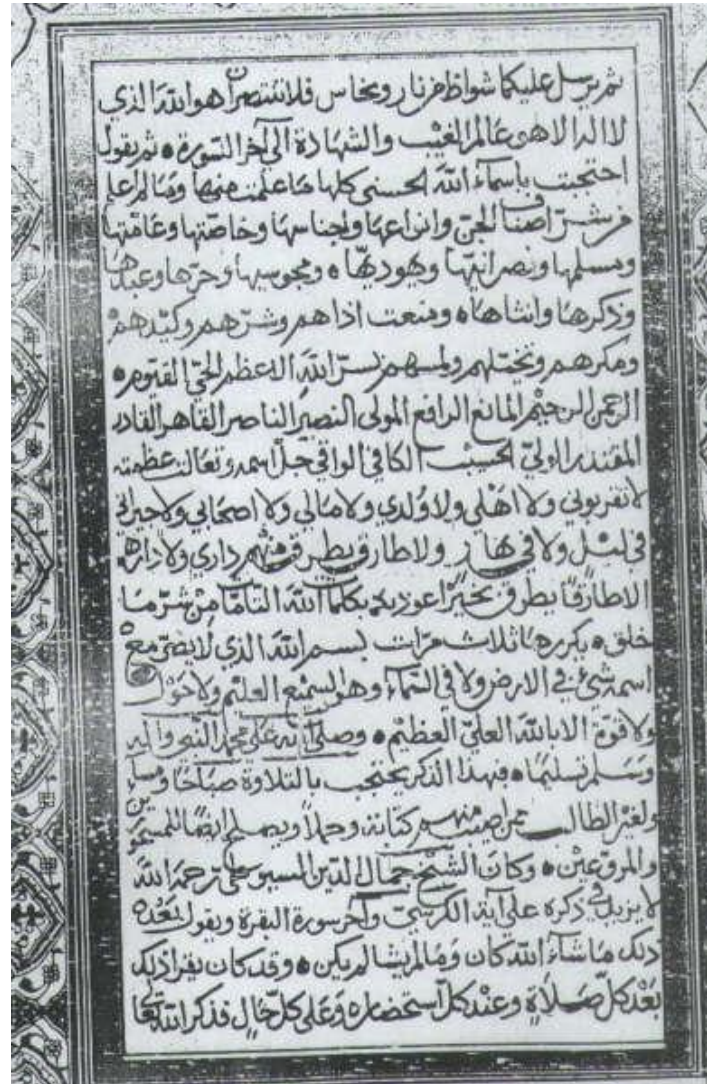 ثم يرسل عليكما شواظ من نار ونحاس فلا تنتصران هو الله الذي
لا اله الا هو عالم الغيب والشهادة الى آخر السورة ٥ ثم يقول
احتجبت باسماء الله الحسنى كلها ما علمت منها وما لم اعلم
من شر اصناف الجن وانواعها واجناسها وخاصّتها وعامّتها
ومسلمها ونصرانيتها ويهوديها ٥ ومجوسيها وحرّها وعبدها
وذكرها وانثاها ٥ ومنعت اذاهم وشرّهم وكيدهم
ومكرهم وتختلهم ولمسهم بسرّ الله الاعظم الحيّ القيّوم ٥
الرحمن الرحيم المانع الرافع المولى النصير الناصر القاهر القادر
المقتدر الوليّ الحسيب الكافي الواقي جلّ اسمه وتعالت عظمته
لا تقربوني ولا اهلي ولا ولدي ولا مالي ولا اصحابي ولا جيراني
في ليل ولا في نهار ولا طارق يطرق منهم داري ولا داره
الا طارقًا يطرق بخير اعوذ بكلمات الله التامّات من شرّ ما
خلق ٥ يكررها ثلاث مرّات بسم الله الذي لا يضرّ مع
اسمه شيء في الارض ولا في السماء وهو السميع العليم ولا حول
ولا قوّة الا بالله العليّ العظيم ٥ وصلى الله على محمد النبي واله
وسلم تسليمًا ٥ فهذا الذكر يحتجب بالتلاوة صباحًا ومساء
ولغير الطالب ممن اصيب منهم كتابة وحملاً ويصلح ايضًا للمسحورين
والمروعين ٥ وكان الشيخ جمال الدين السيوطي رحمه الله
لا يزيل في ذكره على آية الكرسيّ وآخر سورة البقرة ويقول بعده
ذلك ما شاء الله كان وما لم يشا لم يكن ٥ وقد كان يقرا ذلك
بعد كلّ صلاة وعند كلّ استحضاره وعلى كلّ حال فذكر الله تعا